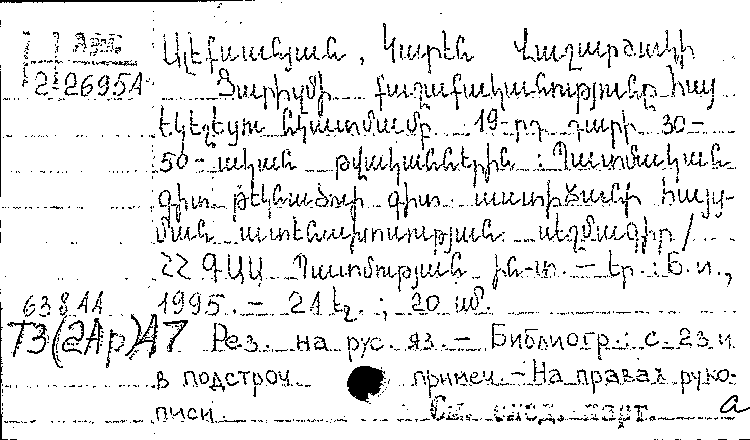 2-2695Ա
Ալեքսանյան, Կարեն Վաչագանի
Ցարիզմի քաղաքականությունը հայ
եկեղեցու նկատմամբ 19-րդ դարի 30-
50-ական թվականներին : Պատմական
գիտ. թեկնածուի գիտ. աստիճանի հայց-
ման ատենախոսության սեղմագիր /
ՀՀ ԳԱԱ Պատմության ին-տ. – Եր. : Բ. ի.,
1995. – 21 էջ. ; 20 սմ.
6384А
Т3(2Ар)47 Рез. на рус. яз. – Библиогр.: с. 23 и
в подстроч. примеч. – На правах руко-
писи. См. след. карт. а